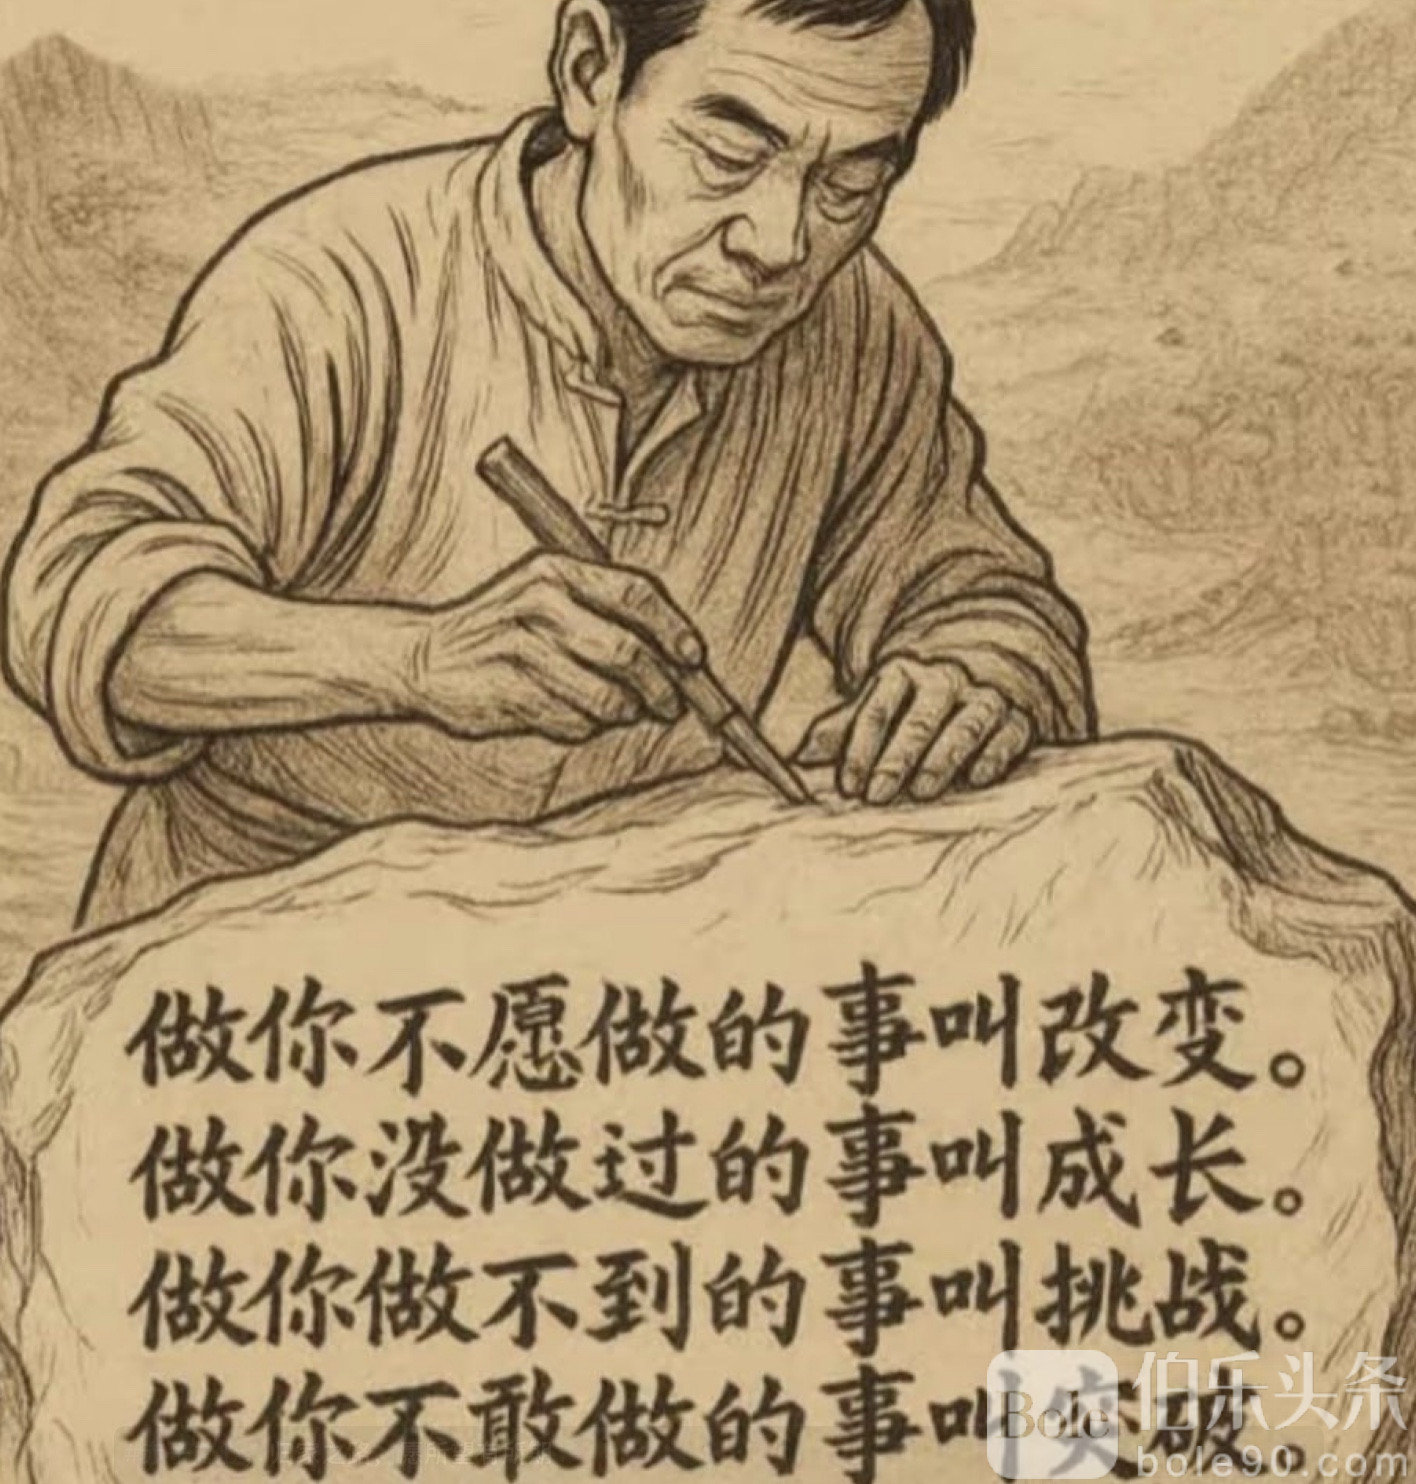 做你不愿做的事叫改变。
做你没做过的事叫成长。
做你做不到的事叫挑战。
做你不敢做的事叫突破。
Bole
伯乐头条
bole90.com